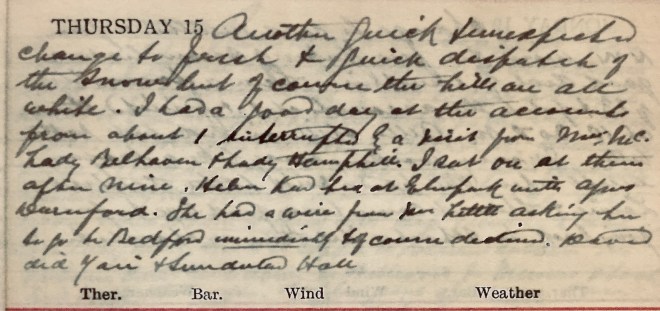 THURSDAY 15 Another quick & unexpected
change to fresh & quick despatch of
the snow but of course the hills are all
white. I had a good day at the accounts
from about 1 interrupted by a visit from Mrs. Mc.
Lady Belhaven & Lady Hamphill. I sat on at them
after nine. Helen had tea at Elmpark with
Durnford. She had a wire from asking her
to go to Bedford immediately & of course declined. David
did & Hall
Ther. Bar. Wind Weather